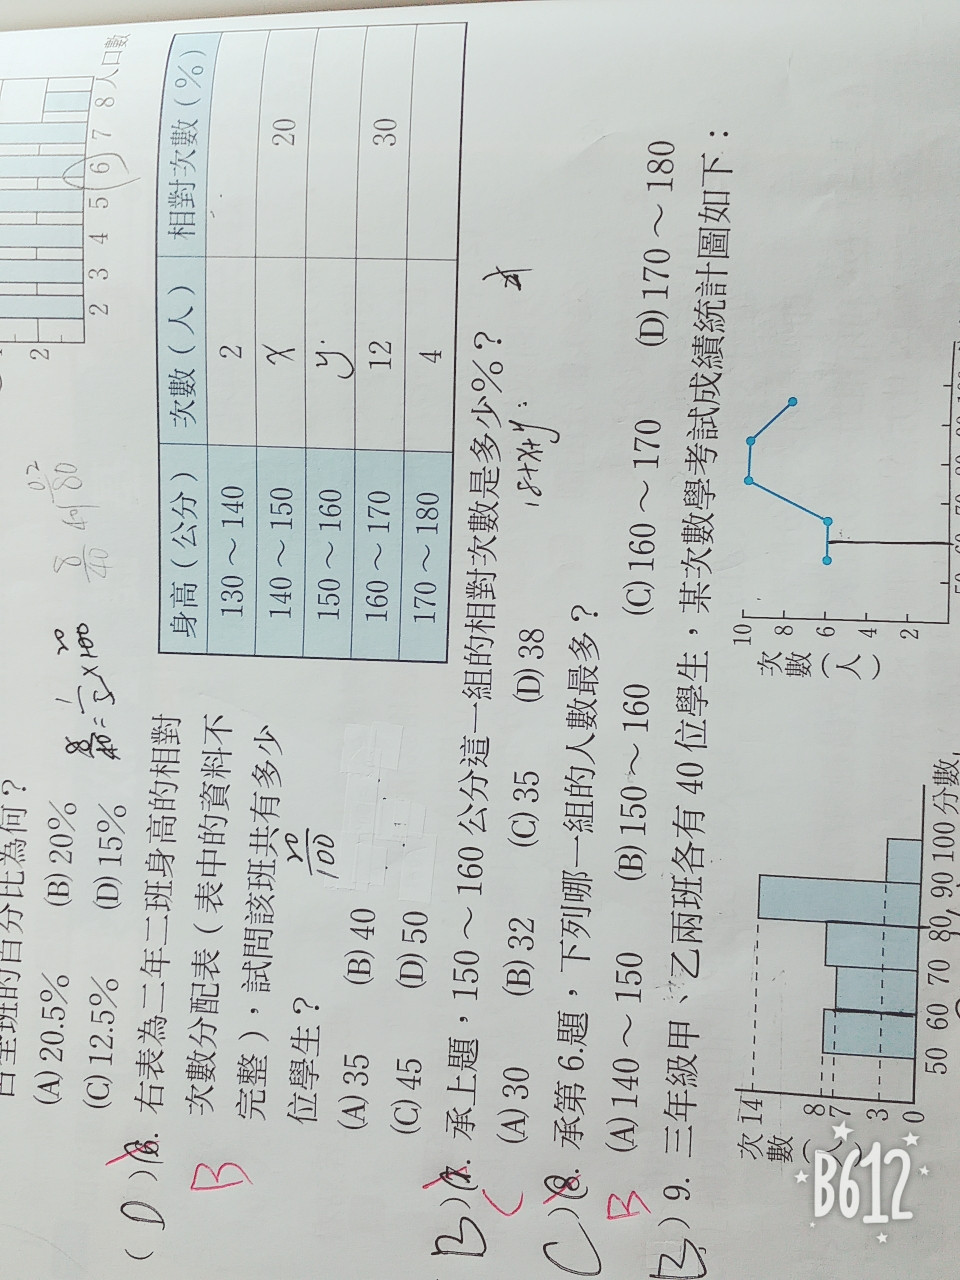 2
2 3 4 5 6 7 8 人口數
占全班的百分比為何？
(A)20.5% (B)20%
(C)12.5% (D)15%
8/40=1/5×100 20
8/40
0.2
( D )6. 右表為二年二班身高的相對
次數分配表（表中的資料不
完整），試問該班共有多少
位學生？
B
20/100
(A)35 (B)40
(C)45 (D)50
身高（公分） 次數（人） 相對次數（%）
130～140 2
140～150 x 20
150～160 y
160～170 12 30
170～180 4
B )7. 承上題，150～160公分這一組的相對次數是多少%？
C
18+x+y
(A)30 (B)32 (C)35 (D)38
C )8. 承第6.題，下列哪一組的人數最多？
B
(A)140～150 (B)150～160 (C)160～170 (D)170～180
B )9. 三年級甲、乙兩班各有40位學生，某次數學考試成績統計圖如下：
次數（
14
8
7
3
0
50 60 70 80 90 100 分數
次數（人）
10
8
6
4
2
B612